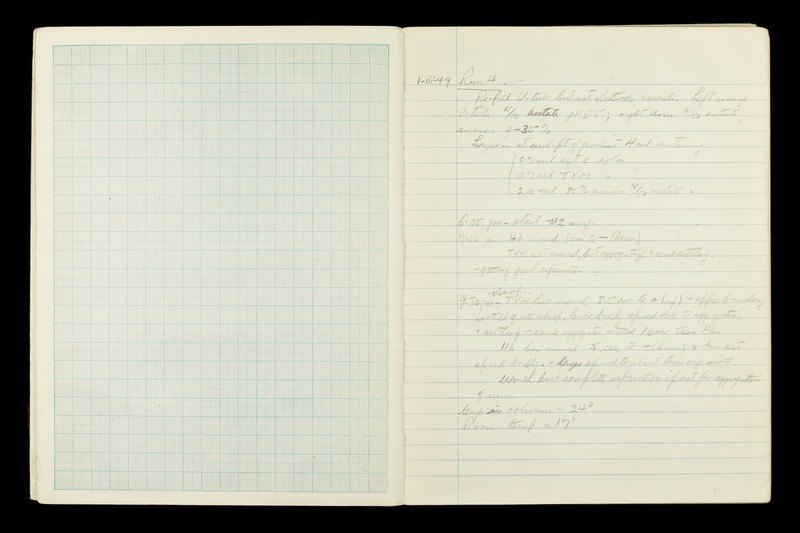 1-iii-49 Run 4.
Re-fill U-tube but not electrode vessels. Left arm of
U-tube N/50 acetate pH ; right arm N/50 acetate,
0-35%
Layer in at midpt of gradient 4 ml containing:
0.7 ml cyt c soln
0.7 ml TYM "
2.0 ml 35% N/50 acetate "
6.05 pm - start .012 amp.
7.00 pm Hb moved 1 cm to - (down)
TYM not moved, but aggregating & some settling.
- getting good separation.
.016 amp
9.30 pm - TYM has moved 3.5 cm to + (up) & upper boundary
is still quite sharp, lower badly spread due to aggregation
& settling - some aggregate settled 1 cm than Hb.
Hb has moved 5 cm to - (down), & has not
spread badly. - layer spread to about twice orig. width.
Would have complete separation if not for aggregation
of
temp in column = 24°
Room temp = 17°